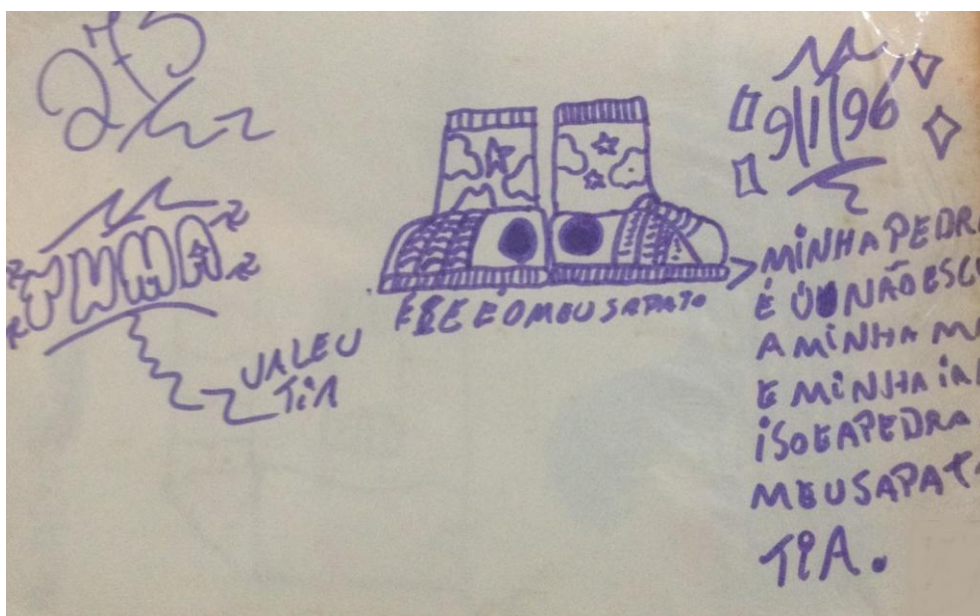 275
TUMA
VALEU
TIA
ESE E O MEU SAPATO
9/1/96
MINHA PEDRA
É
NÃO
A MINHA
E MINHA
ISO E A PEDRA
MEU SAPATO
TIA.